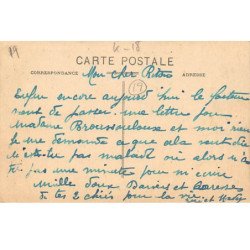 19 4-18
CARTE POSTALE
CORRESPONDANCE Mon cher ADRESSE
19
Enfin encore aujourd'hui le facteur
vient de passer une lettre pour
Madame Broussaulouse et moi rien
je me demande ce que cela veut dire
es tu pas malade ou alors n'a
tu pas une minute pour m'écrire
Mille doux Baisers et caresses
de tes 2 chiens pour la vie
et